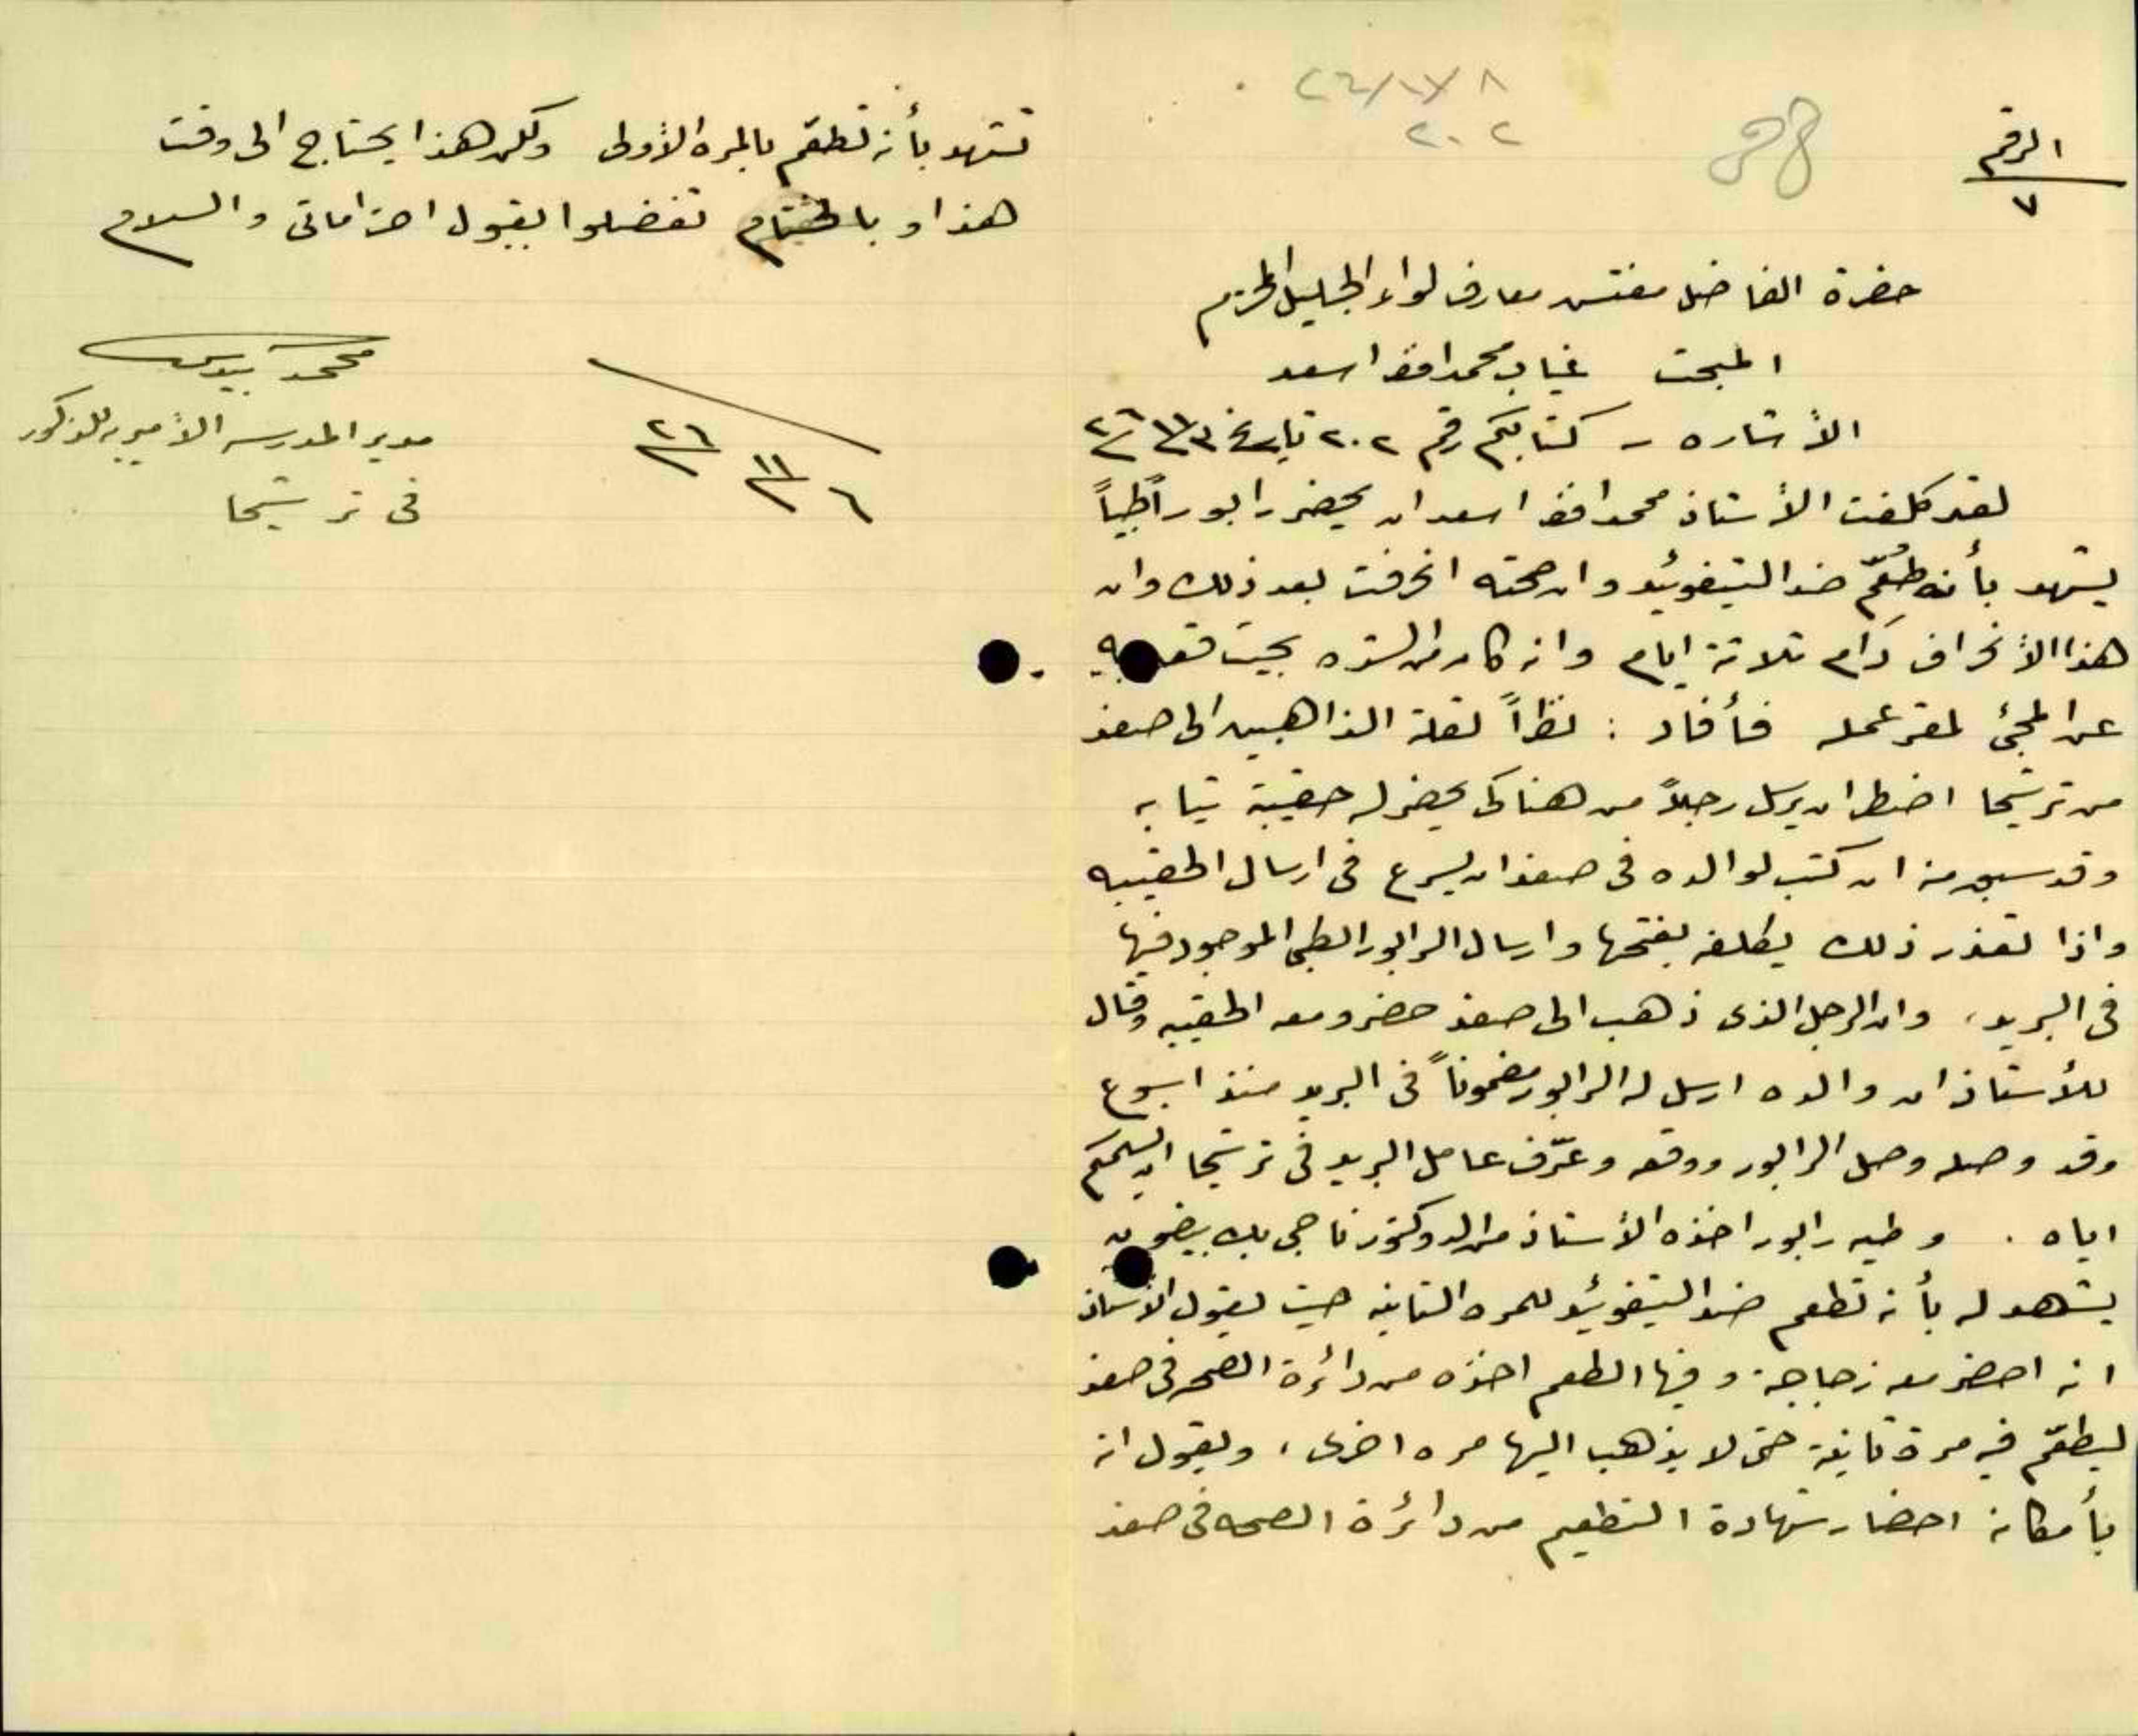 الرقم
٧
38
٢٠٢
حضرة الفاضل مفتش معارف لواء الجليل المحترم
المبحث غياب محمد افندي اسعد
الأشاره - كتابكم رقم ٢٠٢ تاريخ ٣/١١/٢٦
لقد كلفت الأستاذ محمد افندي اسعد ان يحضر رابوراً طبياً
يشهد بأنه طُعّم ضد التيفوئيد وان صحته انحرفت بعد ذلك وان
هذا الأنحراف دام ثلاثة ايام وانه كان من الشده بحيث
عن المجئ لمقر عمله فأفاد : نظراً لقلة الذاهبين الى صفد
من ترشيحا اضطر ان يرسل رجلاً من هنا كي يحضر له حقيبة ثيابه
وقد سبق منه ان كتب لوالده في صفد ان يسرع في ارسال الحقيبه
واذا تعذر ذلك يكلفه بفتحها وارسال الرابور الطبي الموجود فيها
في البريد، وان الرجل الذي ذهب الى صفد حضر ومعه الحقيبه وقال
للأستاذ ان والده ارسل له الرابور مضموناً في البريد منذ اسبوع
وقد وصله وصل الرابور ووقعه وعرّف عامل البريد في ترشيحا ان يسلمكم
اياه . وطيه رابور اخذه الأستاذ من الدوكتور ناجي بك بيضون
يشهد له بأنه تطعم ضد التيفوئيد للمره الثانيه حيث يقول الأستاذ
انه احضر معه زجاجة وفيها الطعم اخذه من دائرة الصحه في صفد
ليطعّم فيه مرة ثانية حتى لا يذهب اليها مره اخرى، ويقول انه
بأمكانه احضار شهادة التطعيم من دائرة الصحه في صفد
تشهد بأنه تطعّم بالمره الأولى ولكن هذا يحتاج الى وقت
هذا و بالختام تفضلوا بقبول احتراماتي والسلام
٦/١١/٢٦
محمد
مدير المدرسه الأميريه للذكور
في ترشيحا